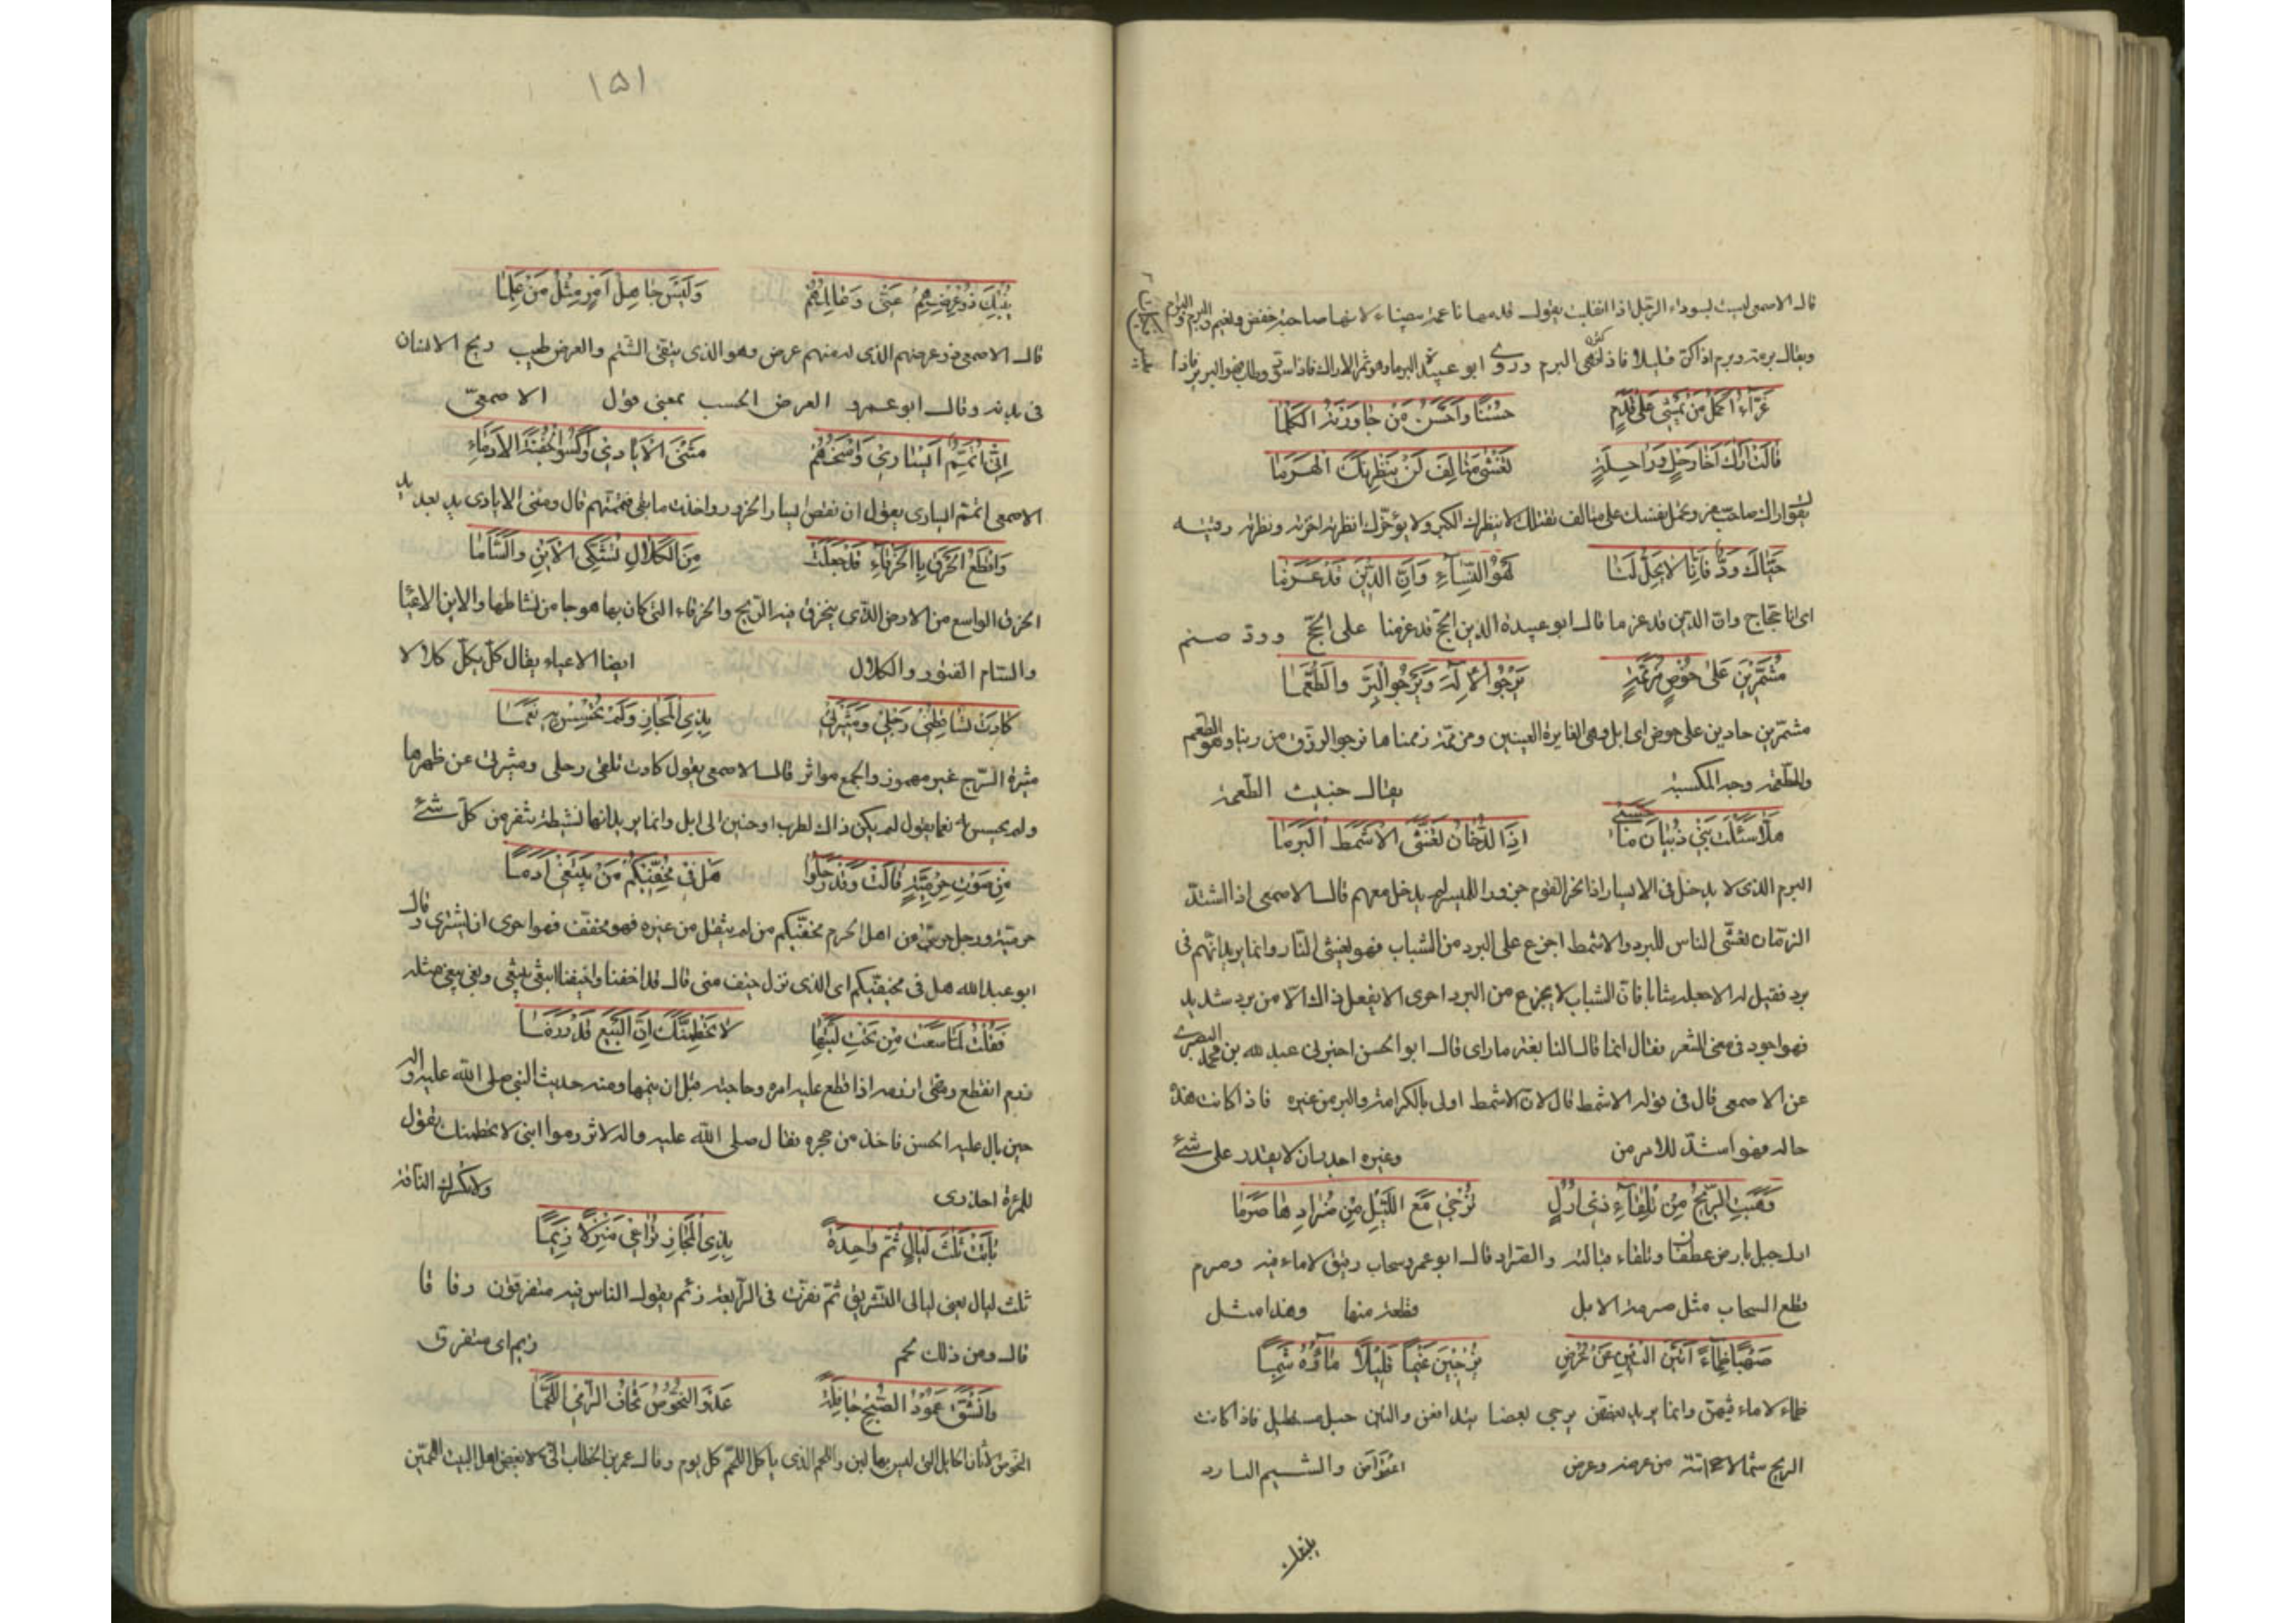 قال الاصمعى ليست بسوداء الرجل اذا انفلتت يقول قدمها ناعمة بيضاء لانها صاحبة خفض ونعيم والبرم والبرام
ويقال برمة وبرم اذا كن قليلا فاذا كثر فهى البرم وروى ابو عبيدة البرما وهو ثمر الاراك
غَرّاءُ اكمَلُ مَن يَمشى عَلى قَدَمٍ حُسْنًا وَاحْسَنُ مَن حَاوَرْتَهُ الكَلِمَا
قَالَتْ اَرَاكَ اَخَا رَحْلٍ وَرَاحِلَةٍ تَغْشَى مَتَالِفَ لَنْ يُنْظِرْنَكَ الهَرَمَا
تقول اراك صاحب سفر وتحمل نفسك على متالف تقتلك لا ينظرك الكبر ولا يؤخرك انظرته اخرته ونظرته رقبته
حَيَّاكَ وَدٌّ فَاِنَّا لا يَحِلُّ لَنَا لَهْوُ النِّسَآءِ وَاِنَّ الدِّينَ قَدْ عَزَمَا
اى انا حجاج وان الدين قد عزما قال ابو عبيدة الدين الحج قد عزمنا على الحج وود صنم
مُشَمِّرِينَ عَلى خُوصٍ مُزَمَّمَةٍ نَرْجُو الاِلٰهَ وَنَرْجُو البِرَّ وَالطُّعَمَا
مشمرين حادين على خوص اى ابل وهى الغايرة العينين ومزممة زممناها نرجو الرزق من ربنا وهو الطعم
والطعمة وجه المكسبة يقال خبيث الطعمة
هَلّا سَئَلْتَ بَنِى ذُبْيَانَ مَا حَسَبِى اِذَا الدُّخَانُ تَغَشَّى الاَشْمَطَ البَرَمَا
البرم الذى لا يدخل فى الايسار اذا نحر القوم جزورا للميسر لم يدخل معهم قال الاصمعى اذا اشتد
الزمان تغشى الناس للبرد والاشمط اجزع على البرد من الشباب فهو يغشى النار وانما يريد انهم فى
برد فقيل له الا جعله شابا فان الشباب لا يجزع من البرد احرى الا يفعل ذاك الا من برد شديد
فهو اجود فى معنى الشعر فقال انما قال النابغة ما راى قال ابو الحسن اخبرنى عبد الله بن محمد البصرى
عن الاصمعى قال فى قوله الاشمط قال لان الاشمط اولى بالكرامة والبر من غيره فاذا كانت هذه
حاله فهو اشد للامر من وغيره اجدر ان لا يقدر على شئ
وَهَبَّتِ الرِّيحُ مِنْ تِلْقَآءِ ذِى اُرُلٍ تُزْجِى مَعَ اللَّيْلِ مِنْ صُرَّادِهَا صِرَمَا
ارل جبل بارض غطفان وتلقاء قبالته والصراد قال ابو عمرو سحاب رقيق لا ماء فيه وصرم
قطع السحاب مثل صرمة الابل قطعة منها وهذا مثل
صُهْبًا ظِمَآءً اَتَيْنَ التِّينَ عَنْ عُرُضٍ يُزْجِينَ غَيْمًا قَلِيلًا مَاؤُهُ شَبِمَا
ظماء لا ماء فيهن وانما يريد بعضهن يزجى بعضا يتدافعن والتين جبل مستطيل فاذا كانت
الريح شمالا اتته من عرضه وعرض والشبم البارد

١٥١
يُنْبِيكَ ذُو عِرْضِهِمْ عَنِّى وَعَالِمُهُمْ وَلَيْسَ جَاهِلُ اَمْرٍ مِثْلَ مَنْ عَلِمَا
قال الاصمعى ذو عرضهم الذى له منهم عرض وهو الذى يتقى الشتم والعرض طيب ريح الانسان
فى بدنه وقال ابو عمرو العرض الحسب بمعنى قول الاصمعى
اِنِّى اُتَمِّمُ اَيْسَارِى وَاَمْنَحُهُمْ مَثْنَى الاَيَادِى وَاَكْسُو الجَفْنَةَ الاُدُمَاءِ
الاصمعى اتمم ايسارى يقول ان نقص ايسار الجزور واخذت ما بقى فتممتهم قال ومثنى الايادى يد بعد يد
وَاقْطَعُ الخَرْقَ بِاالخَرْقَآءِ قَدْ جَعَلَتْ مِنَ الكَلَالِ تَشَكَّى الاَيْنَ وَالسَّامَا
الخرق الواسع من الارض الذى ينخرق فيه الريح والخرقاء التى كان بها هوجا من نشاطها والاين الاعيا
والسام الفتور والكلال ايضا الاعياء يقال كل يكل كلالا
كَادَتْ تُسَاقِطُنِى رَحْلِى وَمِيثَرَتِى بِذِى المَجَازِ وَلَمْ تُحْسِسْ بِهِ نَعَمَا
ميثرة السرج غير مهموز والجمع مواثر قال الاصمعى يقول كادت تلقى رحلى وميثرتى عن ظهرها
ولم تحسس به نعما يقول لم يكن ذاك لطرب او حنين الى ابل وانما يريد انها نشيطة تنفر من كل شئ
مِنْ صَوْتِ حِرْمِيَّةٍ قَالَتْ وَقَدْ رَحَلُوا هَلْ فِى مُخِفِّيكُمُ مَنْ يَبْتَغِى اَدَمَا
حرمية ورجل حرمى من اهل الحرم مخفيكم من لم يثقل من غيره فهو مخفف فهو احرى ان يشترى وقال
ابو عبد الله هل فى مخيفيكم اى الذى نزل خيف منى قال قد اخفنا واخيفنا
فَقُلْتُ لَمَّا سَعَتْ مِنْ تَحْتِ لَبَّتِهَا لا تَحْطِمَنَّكِ اِنَّ البَيْعَ قَدْ زَرِمَا
زرم انقطع ومضى ازرمه اذا قطع عليه امره وحاجته قبل ان يتمها ومنه حديث النبى صلى الله عليه واله
حين بال عليه الحسن فاخذ من حجره فقال صلى الله عليه واله لا تزرموا ابنى لا تحطمنك يقول
للمرءة احذرى ولا تكسرك الناقة
بَاتَتْ ثَلٰثَ لَيَالٍ ثُمَّ وَاحِدَةً بِذِى المَجَازِ تُرَاعِى مَنْزِلًا زِيَمَا
ثلث ليال يعنى ليالى التشريق ثم نفرت فى الرابعة زئم يقول الناس فيه متفرقون
قال ومن ذلك لحم زيم اى متفرق
وَانْشَقَّ عَمُودُ الصُّبْحِ جَافِلَةً عَدْوَ النَّحُوصِ تَخَافُ الرَّامِىَ اللَّحِمَا
النحوص الاتان الحايل التى ليس بها لبن واللحم الذى ياكل اللحم كل يوم وقال عمر بن الخطاب انى لابغض اهل البيت اللحمين